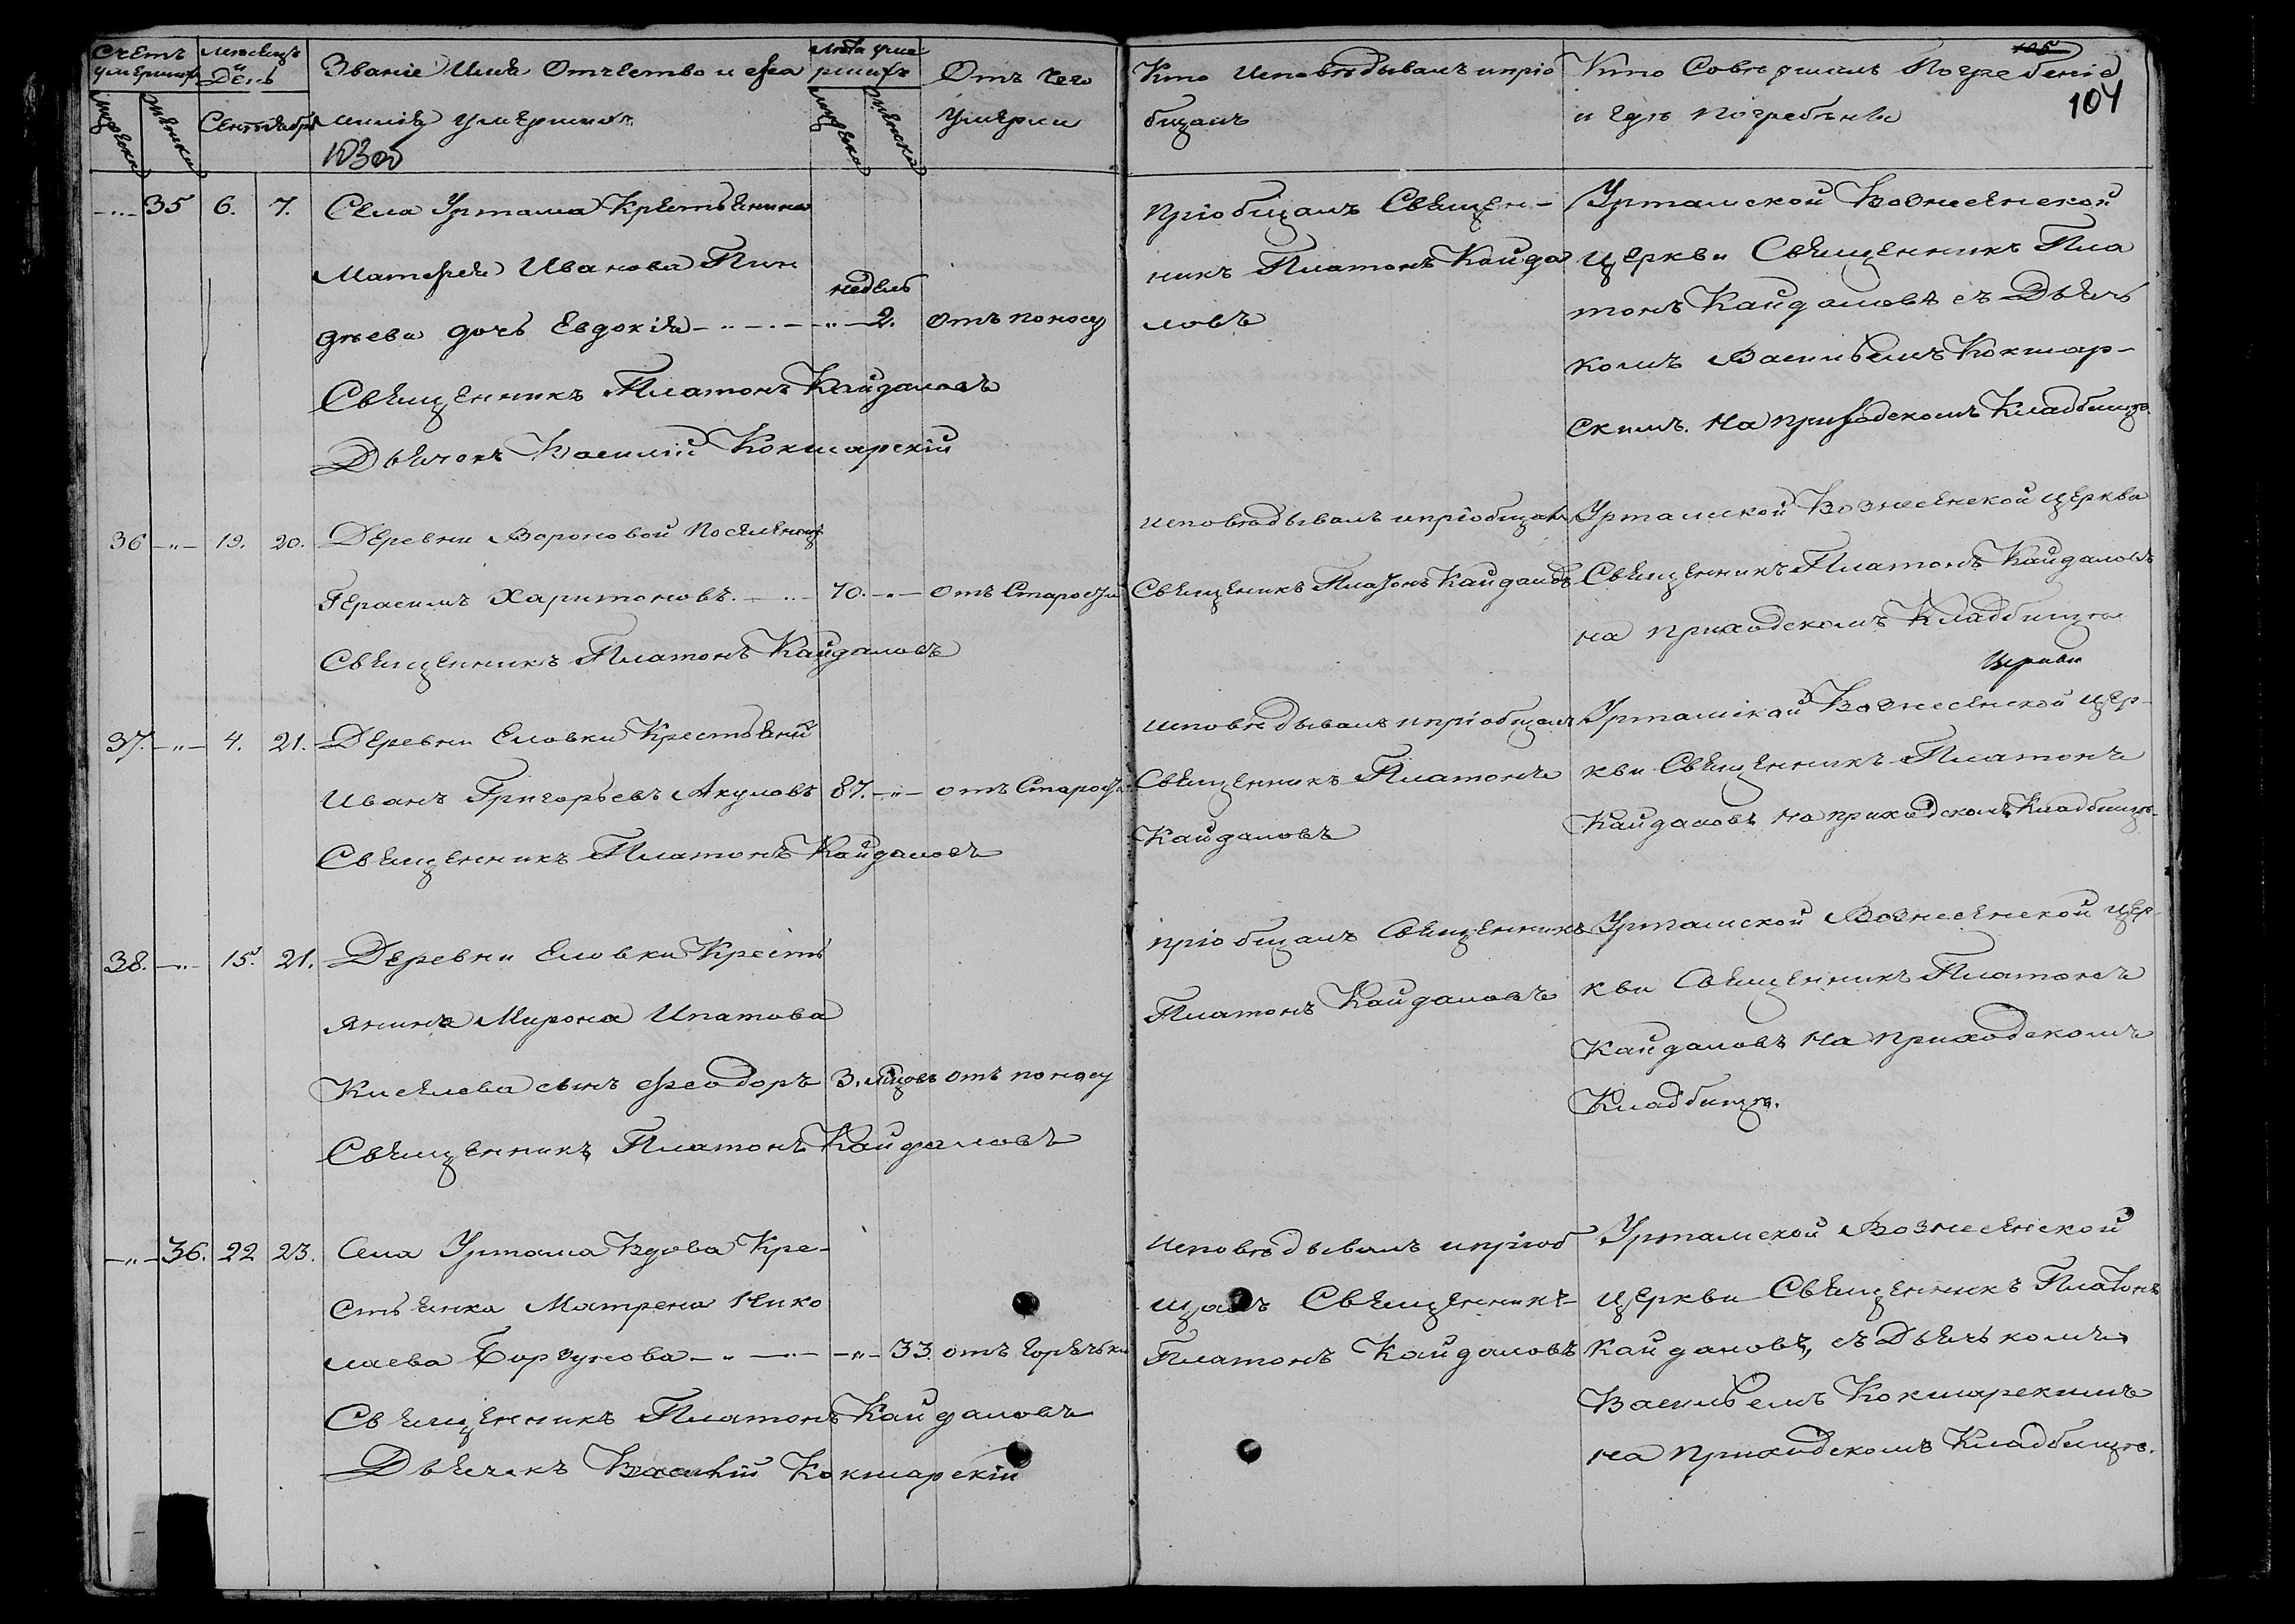 Счетъ умершихъ
мужеска
женска
Месяцъ и День
Сентябрь
Званіе Имя Отчество и фа
милія умершихъ
1030об
Лѣта уме
ршихъ
мужеска
женска
Отъ чего
умерли
Кто Исповѣдывалъ и пріо
бщалъ
Кто Совершалъ Погребеніе
и Гдѣ погребены
105
104
-"- 35 6. 7. Села Уртама Крестьянина
Матфея Иванова Пин
недель
дѣева дочь Евдокія -"- 2. отъ поносу
Священникъ Платонъ Кайдаловъ
Дьячокъ Василій Кокшарскій
пріобщалъ Священ-
никъ Платонъ Кайда
ловъ
Уртамской Вознесенской
Церкви Священникъ Пла
тонъ Кайдаловъ съ Дьяч
комъ Васильемъ Кокшар-
скимъ. На приходскомъ Кладбищѣ
36 -"- 19. 20. Деревни Вороновой Поселенец
Герасимъ Харитоновъ. 70. -"- отъ Старости
Священникъ Платонъ Кайдаловъ
исповѣдывалъ и пріобщалъ
Священикъ Платонъ Кайдаловъ
Уртамской Вознесенской церкви
Священникъ Платонъ Кайдаловъ
на приходскомъ Кладбищѣ
Церкви
37. -"- 4. 21. Деревни Еловки Крестьянинъ
Иванъ Григорьевъ Акуловъ 87. -"- отъ Старости
Священникъ Платонъ Кайдаловъ
исповѣдывалъ и пріобщалъ
Священникъ Платонъ
Кайдаловъ
Уртамской Вознесенской цер-
кви Священникъ Платонъ
Кайдаловъ на приходскомъ Кладбищѣ
38. -"- 15. 21. Деревни Еловки Кресть
янина Мирона Ипатова
Киселева сынъ Феодоръ 3. мѣсяцовъ отъ поносу
Священникъ Платонъ Кайдаловъ
пріобщалъ Священникъ
Платонъ Кайдаловъ
Уртамской Вознесенской цер-
кви Священникъ Платонъ
Кайдаловъ на приходскомъ
Кладбищѣ.
-"- 36. 22 23. Села Уртама Вдова Кре-
стьянка Матрена Нико
лаева Боргунова -"- -"- 33. отъ горячьки
Священникъ Платонъ Кайдаловъ
Дьячекъ Василій Кокшарскій
Исповѣдывалъ и пріоб
щалъ Священникъ
Платонъ Кайдаловъ
Уртамской Вознесенской
церкви Священникъ Платонъ
Кайдаловъ, съ Дьячькомъ
Васильемъ Кокшарскимъ
на приходскомъ Кладбищѣ.